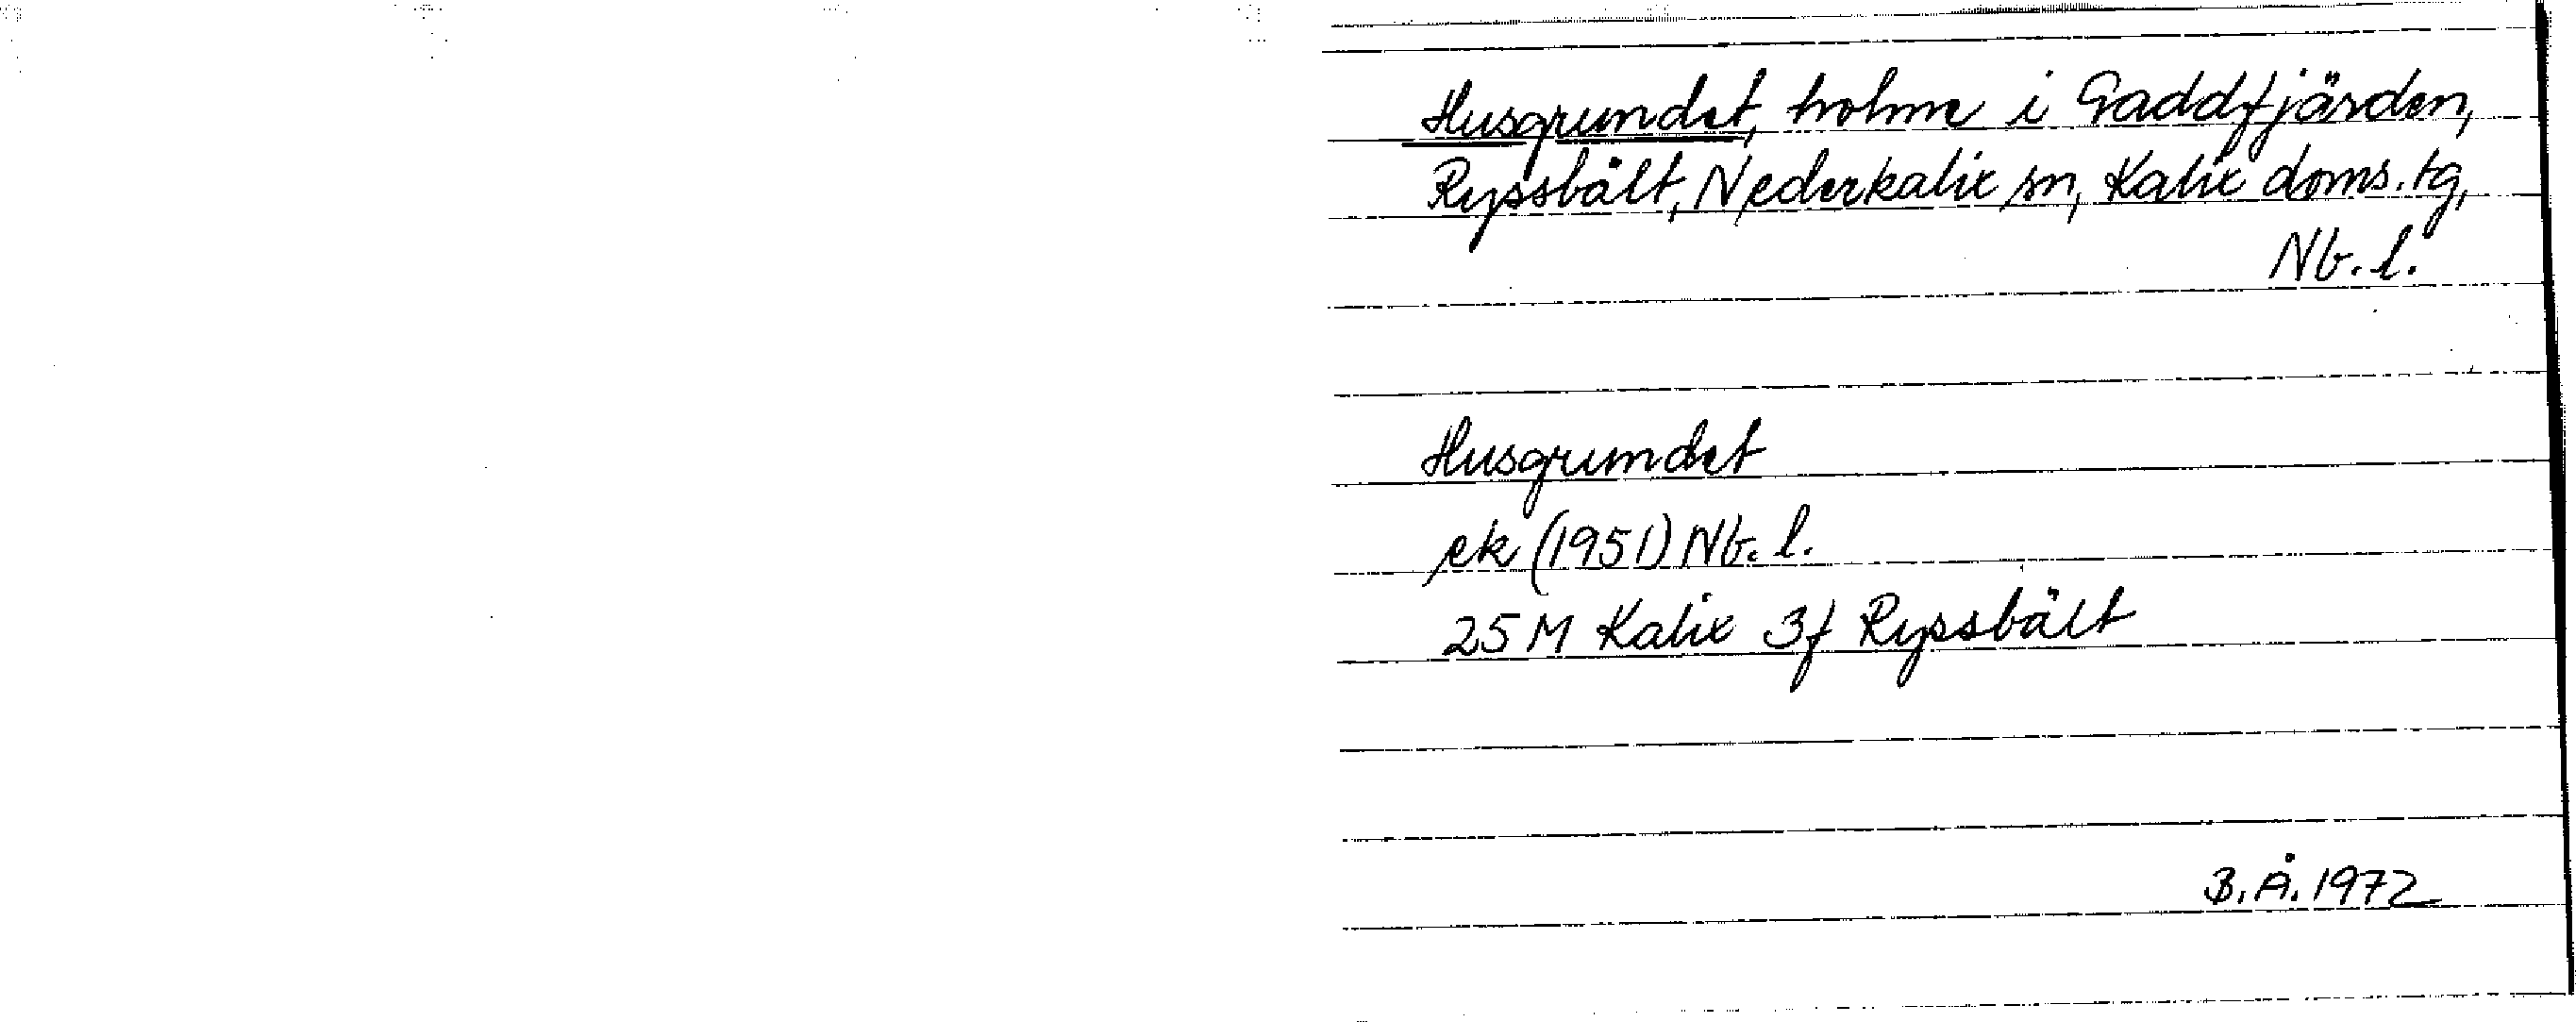 Husgrundet, holme i Gaddfjärden,
Ryssbält, Nederkalix sn, Kalix doms. tg,
Nb. l.
Husgrundet
ek (1951) Nb. l.
25 M Kalix 3f Ryssbält
B. Å. 1972